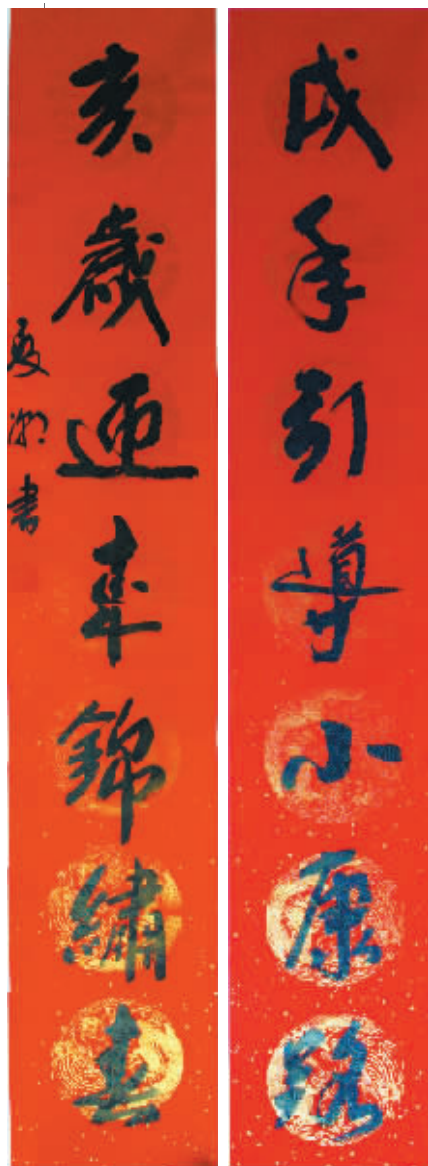 戌年引導小康路
亥歲迎來錦繡春
夏湘書